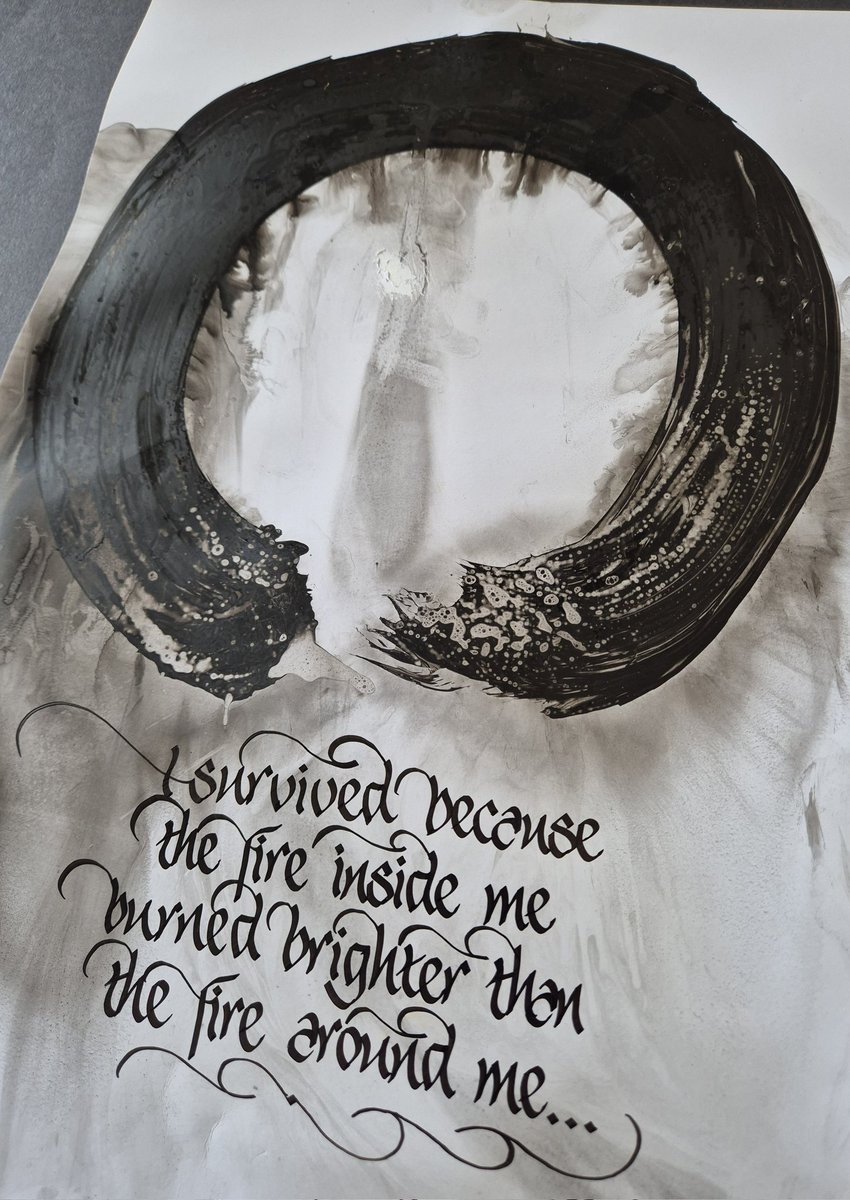 I survived because
the fire inside me
burned brighter than
the fire around me...